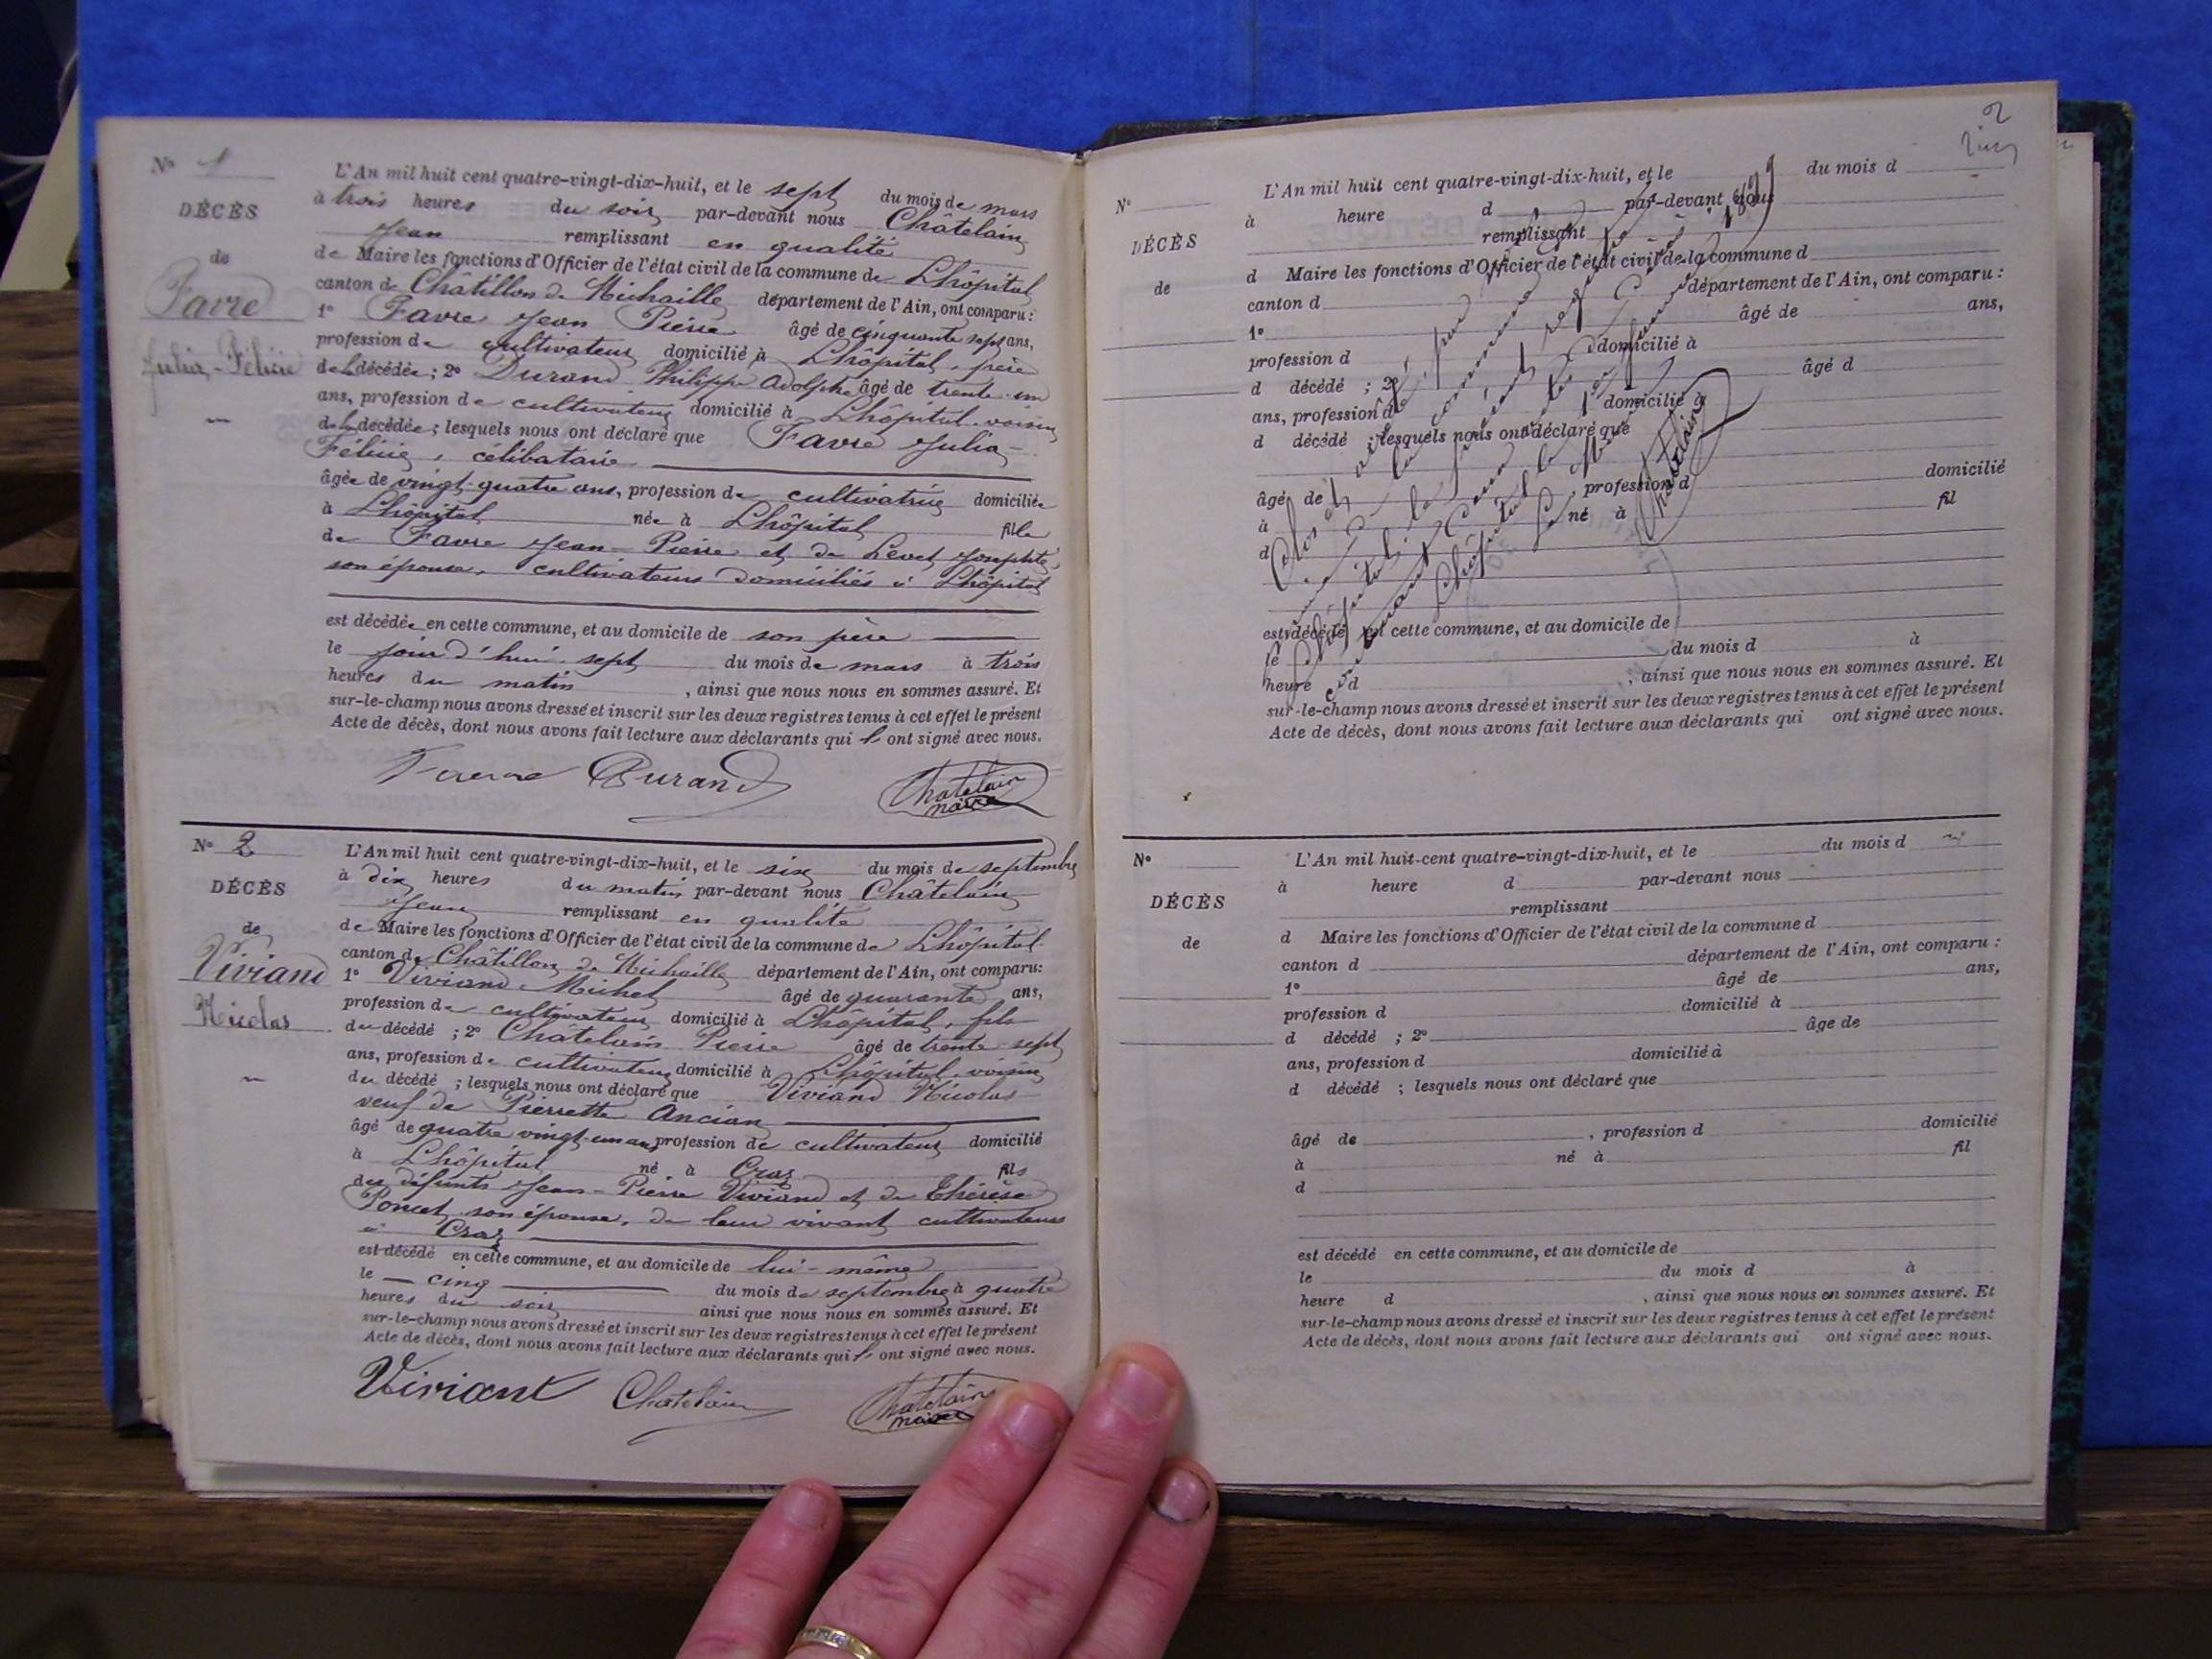 N° 1
DÉCÈS
de
Favre
Julia-Félicie
L'An mil huit cent quatre-vingt-dix-huit, et le sept du mois de mars
à trois heures du soir par-devant nous Châtelain
Jean remplissant en qualité
de Maire les fonctions d'Officier de l'état civil de la commune de Lhôpital
canton de Châtillon de Michaille département de l'Ain, ont comparu :
1° Favre Jean Pierre âgé de cinquante sept ans,
profession de cultivateur domicilié à Lhôpital, père
de la décédée ; 2° Durand Philippe Adolphe âgé de trente-un
ans, profession de cultivateur domicilié à Lhôpital voisin
de la décédée ; lesquels nous ont déclaré que Favre Julia-
Félicie, célibataire
âgée de vingt-quatre ans, profession de cultivatrice domiciliée
à Lhôpital née à Lhôpital fille
de Favre Jean-Pierre et de Levet
son épouse, cultivateurs domiciliés à Lhôpital
est décédée en cette commune, et au domicile de son père
le jour d'hui sept du mois de mars à trois
heures du matin, ainsi que nous nous en sommes assuré. Et
sur-le-champ nous avons dressé et inscrit sur les deux registres tenus à cet effet le présent
Acte de décès, dont nous avons fait lecture aux déclarants qui ont signé avec nous.
Favre Durand Chatelain
maire
N° 2
DÉCÈS
de
Viviand
Nicolas
L'An mil huit cent quatre-vingt-dix-huit, et le six du mois de septembre
à dix heures du matin par-devant nous Châtelain
Jean remplissant en qualité
de Maire les fonctions d'Officier de l'état civil de la commune de Lhôpital
canton de Châtillon de Michaille département de l'Ain, ont comparu :
1° Viviand Michel âgé de quarante ans,
profession de cultivateur domicilié à Lhôpital, fils
du décédé ; 2° Châtelain Pierre âgé de trente-sept
ans, profession de cultivateur domicilié à Lhôpital voisin
du décédé ; lesquels nous ont déclaré que Viviand Nicolas
veuf de Pierrette Ancian
âgé de quatre vingt-un ans, profession de cultivateur domicilié
à Lhôpital né à Craz fils
des défunts Jean-Pierre Viviand et de Thérèse
Poncet son épouse, de leur vivant cultivateurs
à Craz
est décédé en cette commune, et au domicile de lui-même
le cinq du mois de septembre à quatre
heures du soir ainsi que nous nous en sommes assuré. Et
sur-le-champ nous avons dressé et inscrit sur les deux registres tenus à cet effet le présent
Acte de décès, dont nous avons fait lecture aux déclarants qui ont signé avec nous.
Viviant Chatelain Chatelain
maire
2
N°
DÉCÈS
de
L'An mil huit cent quatre-vingt-dix-huit, et le du mois d
à heure d par-devant nous
remplissant
d Maire les fonctions d'Officier de l'état civil de la commune d
canton d département de l'Ain, ont comparu :
1° âgé de ans,
profession d domicilié à
d décédé ; 2° âgé d
ans, profession d domicilié à
d décédé ; lesquels nous ont déclaré que
âgé de , profession d domicilié
à né à fil
d
est décédé en cette commune, et au domicile de
le du mois d à
heure d , ainsi que nous nous en sommes assuré. Et
sur-le-champ nous avons dressé et inscrit sur les deux registres tenus à cet effet le présent
Acte de décès, dont nous avons fait lecture aux déclarants qui ont signé avec nous.
Clos et arrêté par
la commune
Lhôpital, le présent registre
Lhôpital le 1er janvier 1899
Le Maire
Chatelain
N°
DÉCÈS
de
L'An mil huit-cent quatre-vingt-dix-huit, et le du mois d
à heure d par-devant nous
remplissant
d Maire les fonctions d'Officier de l'état civil de la commune d
canton d département de l'Ain, ont comparu :
1° âgé de ans,
profession d domicilié à
d décédé ; 2° âge de
ans, profession d domicilié à
d décédé ; lesquels nous ont déclaré que
âgé de , profession d domicilié
à né à fil
d
est décédé en cette commune, et au domicile de
le du mois d à
heure d , ainsi que nous nous en sommes assuré. Et
sur-le-champ nous avons dressé et inscrit sur les deux registres tenus à cet effet le présent
Acte de décès, dont nous avons fait lecture aux déclarants qui ont signé avec nous.